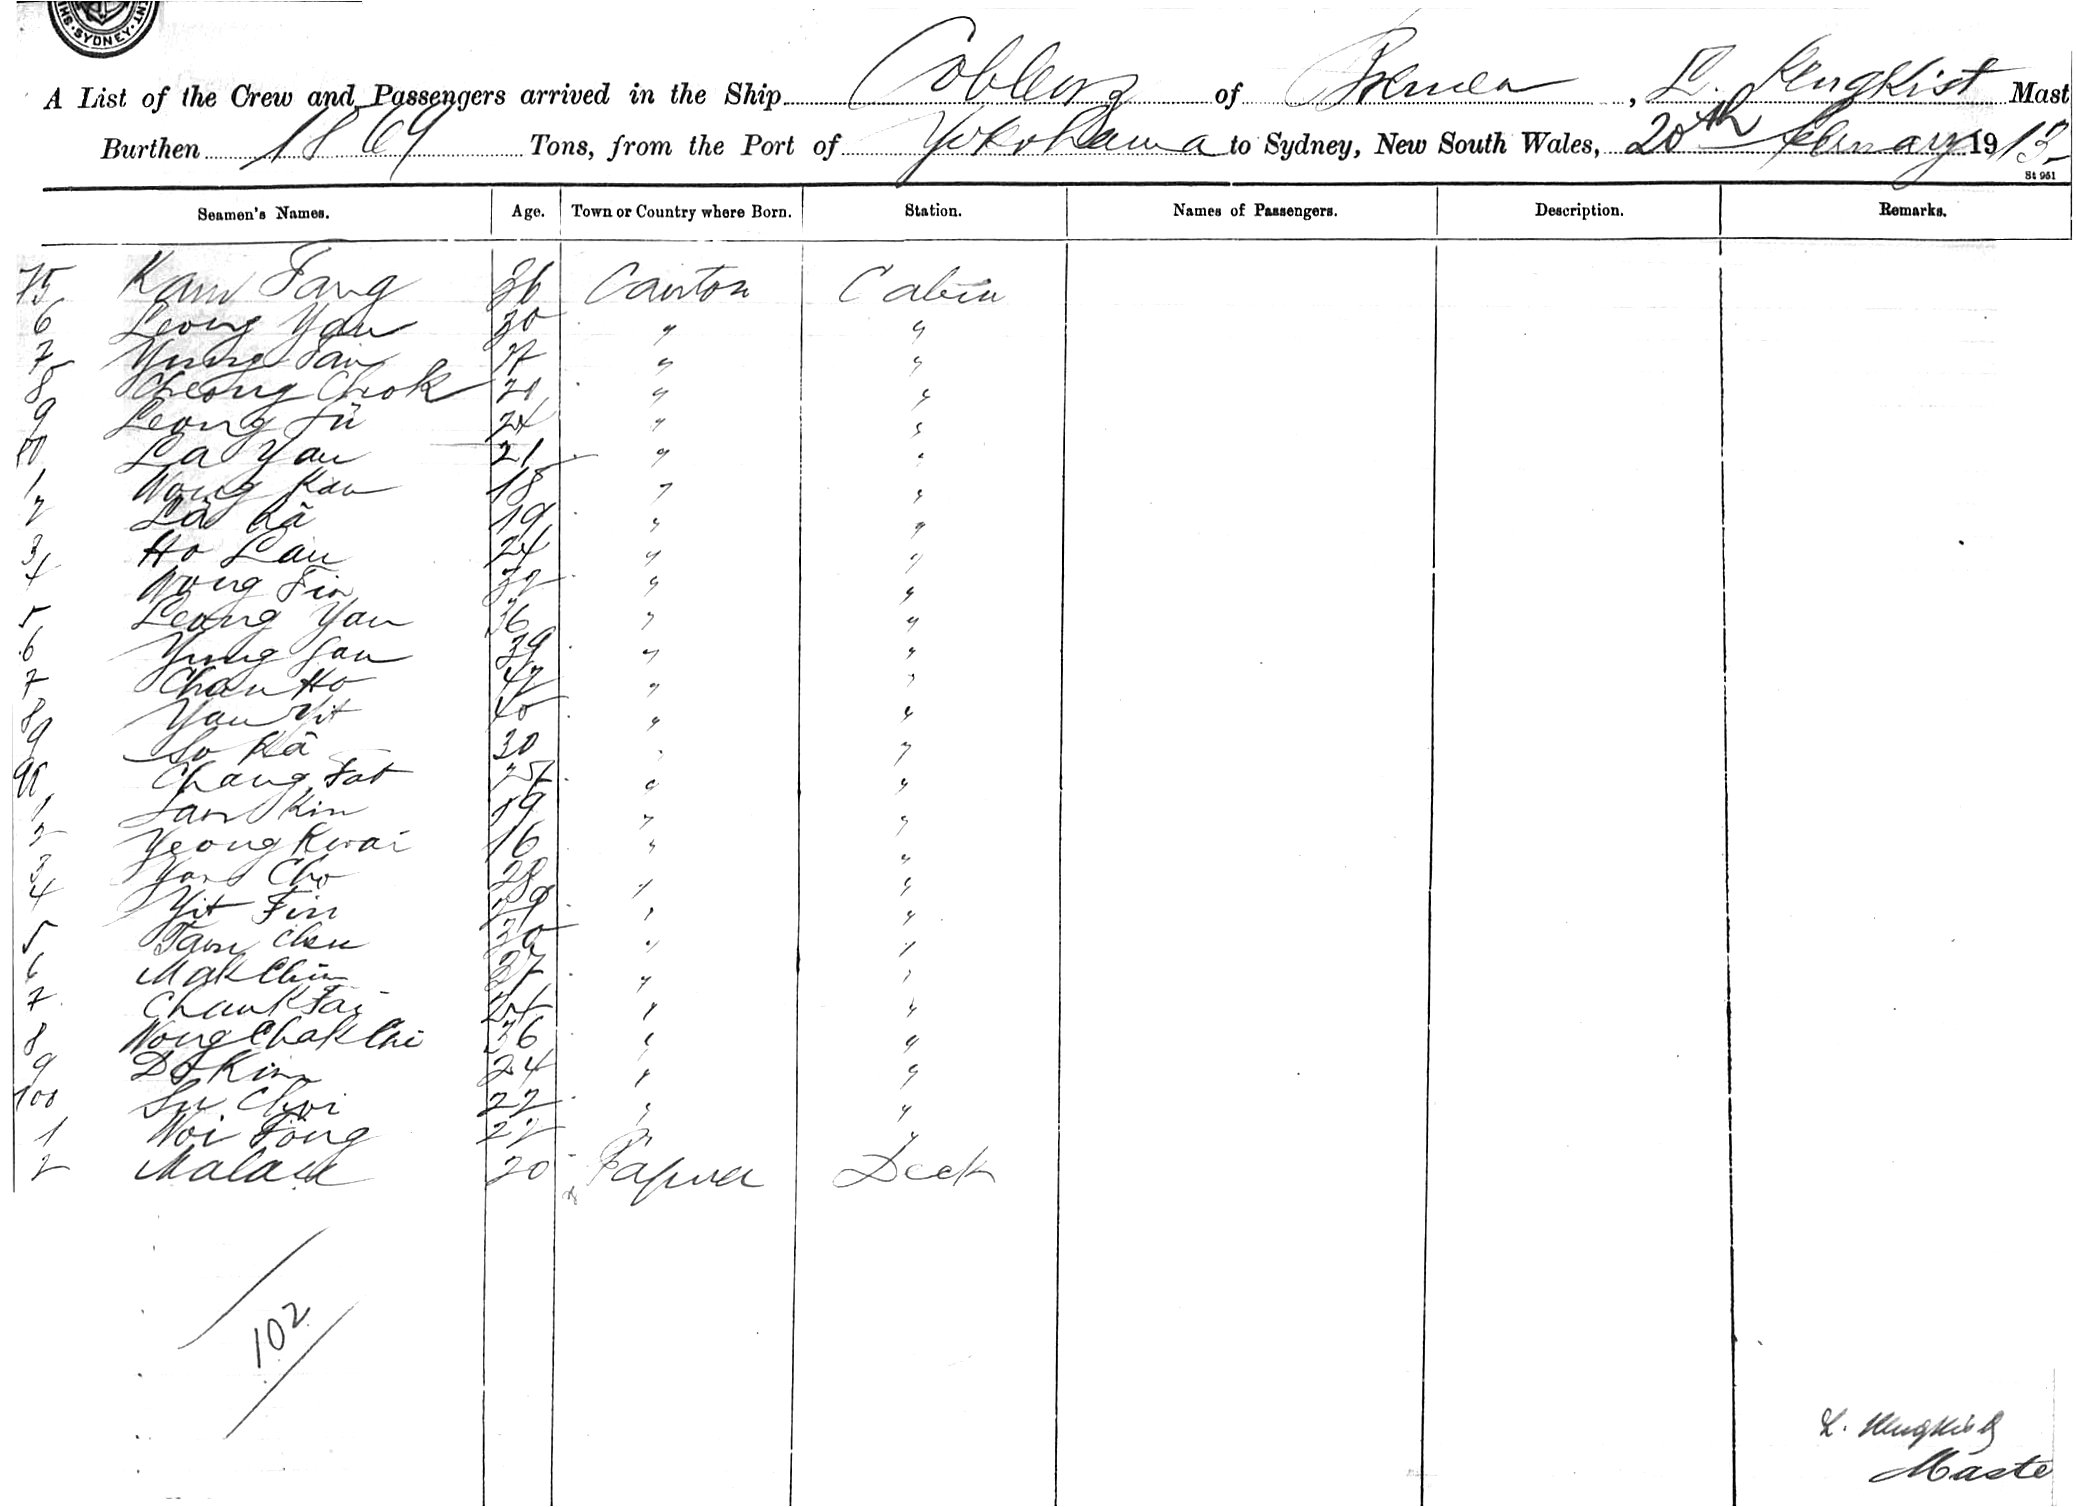 SYDNEY
A List of the Crew and Passengers arrived in the Ship Coblenz of Bremen, L. Klugkist Mast
Burthen 1869 Tons, from the Port of Yokohama to Sydney, New South Wales, 20th February 1913
St 961
Seamen's Names. Age. Town or Country where Born. Station. Names of Passengers. Description. Remarks.
75 Kam Fang 36 Canton Cabin
6 Leong Yau 30 " "
7 Yung Tai 37 " "
8 Cheong Chok 20 " "
9 Leong Fü 24 " "
80 La Yau 21 " "
1 Wong Kau 18 " "
2 Lâ Kâ 19 " "
3 Ho Lau 24 " "
4 Wong Tin 32 " "
5 Leong Yau 36 " "
6 Yung Gau 39 " "
7 Chau Ho 42 " "
8 Yau Yit 40 " "
9 So Kâ 30 " "
90 Chang Fat 24 " "
1 Sam Kin 19 " "
2 Yeong Kwai 16 " "
3 Yan Cho 28 " "
4 Yit Fin 29 " "
5 Tam Chu 30 " "
6 Mak Chün 37 " "
7 Chauk Fai 24 " "
8 Wong Chak Chi 36 " "
9 Do Kim 24 " "
100 Su Choi 22 " "
1 Woi Fong 22 " "
2 Malaue 20 Papua Deck
102
L. Klugkist
Maste